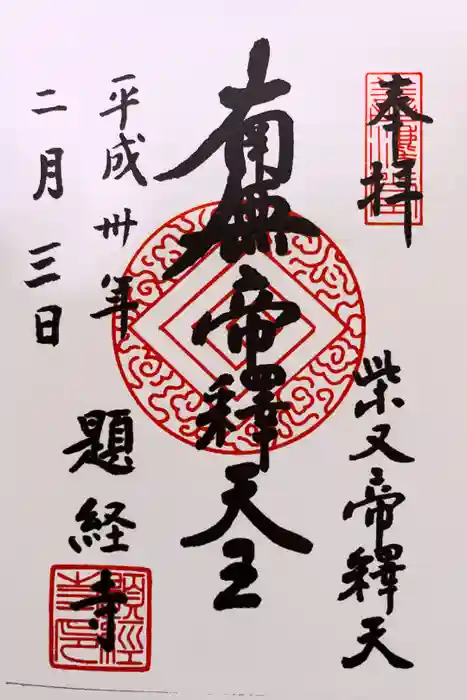 奉拝
柴又帝釋天
南無帝釋天王
平成卅年
二月三日
題経寺